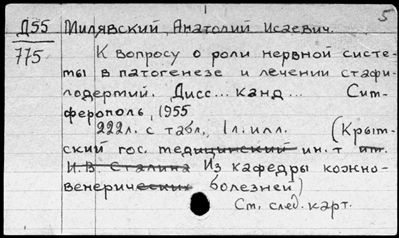 5
Д55 Милявский, Анатолий Исаевич.
775 К вопросу о роли нервной систе-
мы в патогенезе и лечении стафи-
лодермий. Дисс... канд... Сим-
ферополь, 1955
222л. с табл., 1л. илл. (Крым-
ский гос. медицинский ин-т им.
И.В. Сталина Из кафедры кожно-
венерических болезней)
См. след. карт.